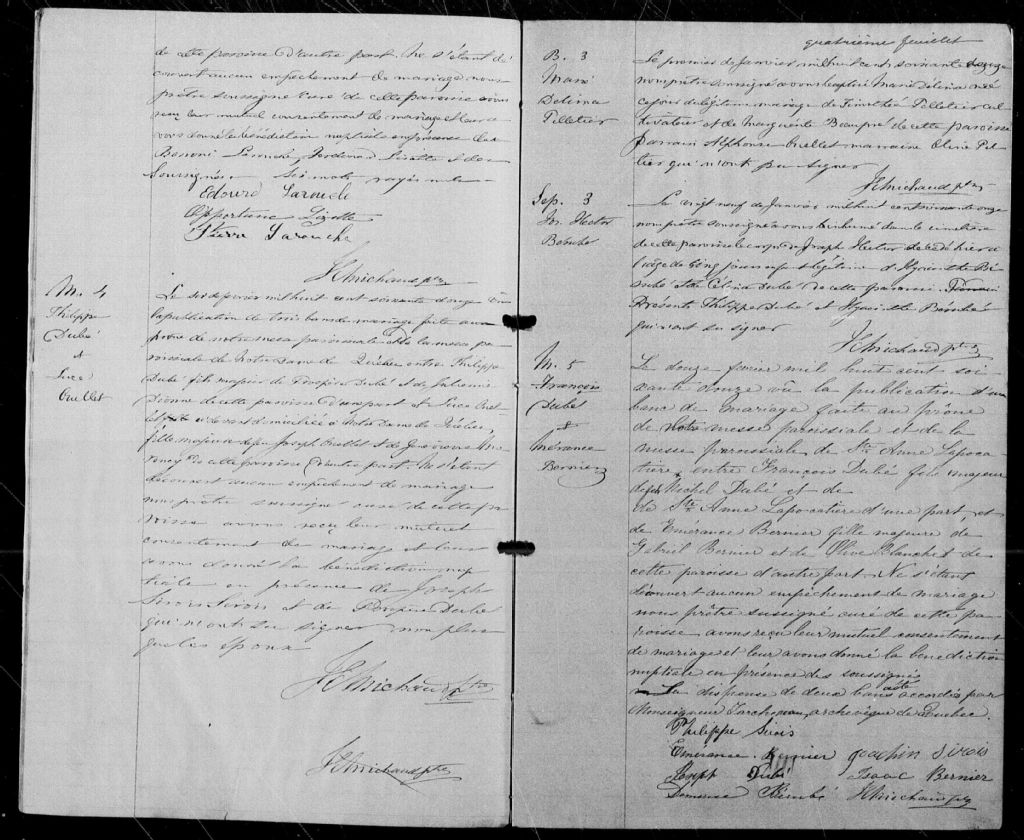 de cette paroisse d'autre part. Ne s'étant dé
couvert aucun empêchement de mariage nous
prêtre soussigné curé de cette paroisse avons
reçu leur mutuel consentement de mariage et leur a
vons donné la bénédiction nuptiale en présence de
Benoni Larouche, Ferdinand Lizotte et des
Soussignés. Six mots rayés nuls
Edouard Larouche
Opportune Lizotte
Pierre Larouche
JCMichaud ptre
M. 4
Philippe
Dubé
et
Luce
Ouellet
Le six de février mil huit cent soixante douze vu
la publication de trois bans de mariage faite au
prône de notre messe paroissiale et de la messe pa
roissiale de Notre Dame de Québec entre Philippe
Dubé fils majeur de Prospère Dubé et de
Dionne de cette paroisse d'une part et Luce Ouel
let de Notre Dame de Québec,
fille majeure de feu Joseph Ouellet et de Geneviève
de cette paroisse d'autre part. Ne s'étant
découvert aucun empêchement de mariage
nous prêtre soussigné curé de cette pa
roisse avons reçu leur mutuel
consentement de mariage et leur
avons donné la bénédiction nup
tiale en présence de Joseph
Sirois et de Dubé
qui n'ont su signer non plus
que les époux
JCMichaud Ptre
JCMichaud ptre
quatrième feuillet
B. 3
Marie
Delima
Pelletier
Le premier de janvier mil huit cent soixante douze
nous prêtre soussigné avons baptisé Marie Delima née
ce jour du légitime mariage de Pelletier cul
tivateur et de Marguerite Beaupré de cette paroisse
Parrain Alphonse Ouellet marraine Pel
letier qui n'ont pu signer
JCMichaud ptre
Sep. 3
Jos. Hector
Bérubé
Le vingt neuf de janvier mil huit cent soixante douze
nous prêtre soussigné avons inhumé dans le cimetière
de cette paroisse le corps de Joseph Hector décédé hier à
l'âge de cinq jours enfant légitime d'Hyacinthe Bé
rubé et de Célina Dubé de cette paroisse.
Présents Philippe Dubé et Hyacinthe Bérubé
qui n'ont su signer
JCMichaud ptre
M. 5
François
Dubé
et
Emérance
Bernier
Le douze février mil huit cent soi
xante douze vû la publication d'un
banc de mariage faite au prône
de notre messe paroissiale et de la
messe paroissiale de Ste Anne Lapoca
tière, entre François Dubé fils majeur
de feu Michel Dubé et de
de Ste Anne Lapocatière d'une part, et
de Emérance Bernier fille majeure de
Gabriel Bernier et de Olive Blanchet de
cette paroisse d'autre part. Ne s'étant
découvert aucun empêchement de mariage
nous prêtre sussigné curé de cette pa
roisse avons reçu leur mutuel consentement
de mariage et leur avons donné la benediction
nuptiale en présence des soussignés
La dispense de deux bans a été accordée par
Monseigneur Tarchereau, archevêque de Quebec.
Philippe Sirois
Emérance Bernier Joachin Sirois
Joseph Dubé Isaac Bernier
Bérubé JCMichaud ptre